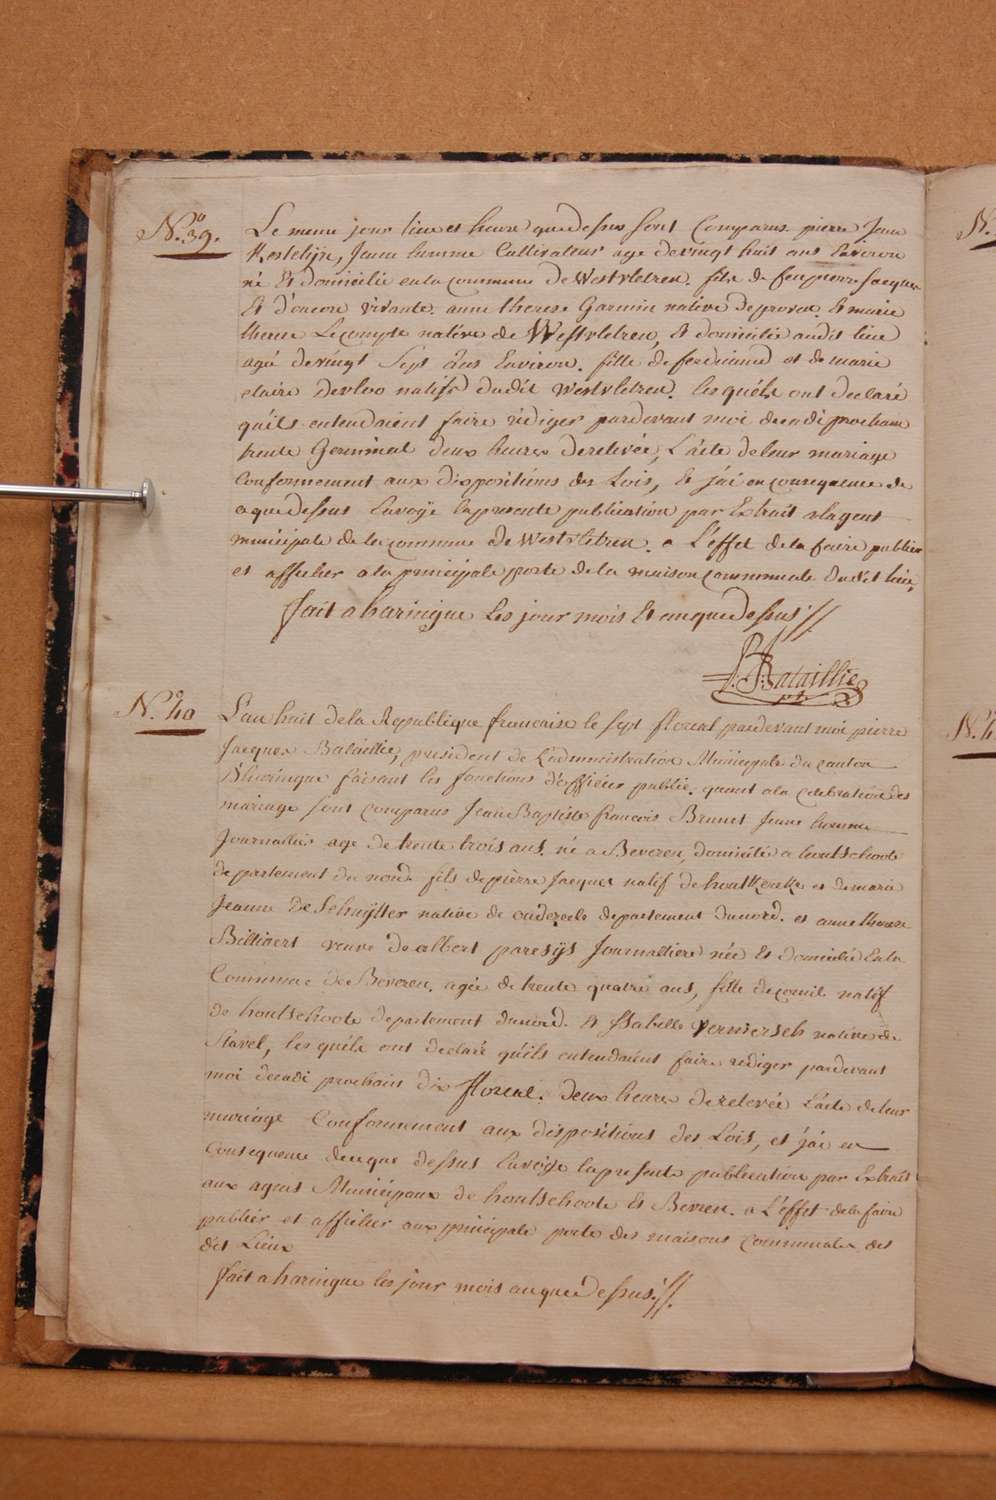 No. 39.
Le meme jour lieu et heure que dessus sont Comparus pierre Jean
Kestelijn, Jeune homme Cultivateur age de vingt huit ans Environ
né Et domicilié en la commune de Westvletren. fils de feu pierre Jacques
Et d'encore vivante. anne therese Garmin native de proven. Et marie
therese Le compte native de Westvletren, Et domicilié audit lieu
agé de vingt Sept Ans Environ. fille de ferdinand et de marie
claire Devloo natifs dudit Westvletren. lesquéls ont declaré
quils entendaient faire rédiger pardevant moi decadi prochain
trente Germinal deux heures de relevée, L'acte de leur mariage
Conformement aux dispositions des Lois, Et j'ai en consequence de
ce que dessus Envoÿe la presente publication par Extrait a lagent
municipale de la commune de Westvletren. a L'effet de la faire publier
et afficher a la principale porte de la maison communale dudit lieu,
fait a haringue Les jour mois Et an que dessus //
P. J. Bataillie
pt.
No. 40
L'an huit de la Republique francaise le sept floreal pardevant moi pierre
Jacques Bataillie, president de L'administration Municipale du canton
d'haringue faisant les fonctions d'officier public. quant a la celebration des
mariage sont comparus Jean Baptiste francois Brunet Jeune homme
Journallier age de trente trois ans. né a Beveren, domicilié a hontschoote
departement du nord. fils de pierre Jacques natif de houtkercke et de marie
Jeanne De Schuÿtter native de oudezeele departement du nord. et anne therese
Billiaert veuve de albert paresijs Journalliere née Et domicilié En la
Commune de Beveren. agée de trente quatre ans, fille de cornil natif
de hontschoote departement du nord. Et Isabelle vermersch native de
Stavel, lesquéls ont declaré qu'ils entendaient faire rediger pardevant
moi decadi prochain dix floreal. deux heures de relevée L'acte de leur
mariage Conformement aux dispositions des Lois, et j'ai en
Consequence de ce que dessus Envoÿe la presente publication par Extrait
aux agens Municipaux de hontschoote Et Beveren. a L'effet de la faire
publier et afficher aux principale porte des maisons communales des
dit Lieux
fait a haringue les jour mois an que dessus. //.